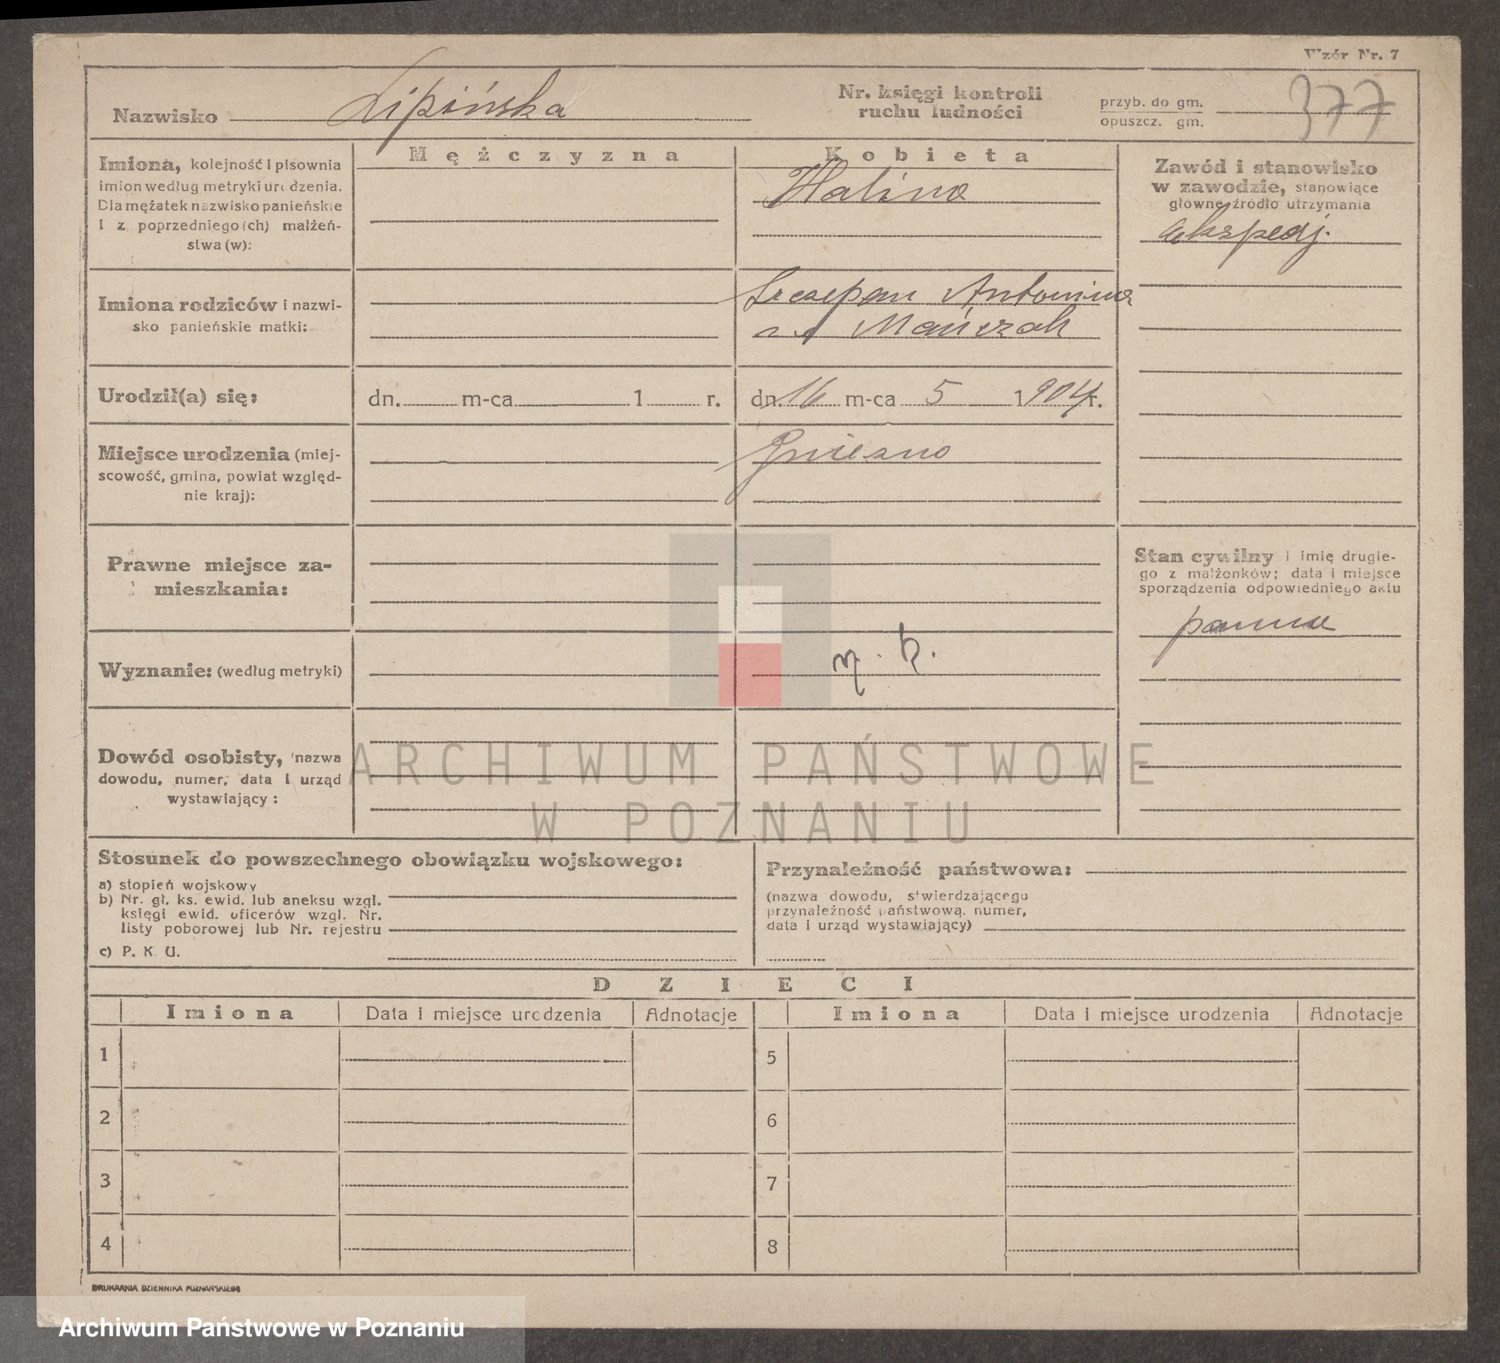 Wzór Nr. 7
Nazwisko Lipińska
Nr. księgi kontroli
ruchu ludności
przyb. do gm.
opuszcz. gm.
377
Mężczyzna
Kobieta
Imiona, kolejność i pisownia
imion według metryki urodzenia.
Dla mężatek nazwisko panieńskie
I z poprzedniego (ch) małżeń-
stwa (w):
Halina
Zawód i stanowisko
w zawodzie, stanowiące
główne źródło utrzymania
ekspedj.
Imiona rodziców i nazwi-
sko panieńskie matki:
Szczepan Antonina
Mańczak
Urodził(a) się:
dn. m-ca 1 r.
dn. 16 m-ca 5 1904 r.
Miejsce urodzenia (miej-
scowość, gmina, powiat względ-
nie kraj):
Gniezno
Prawne miejsce za-
mieszkania:
Stan cywilny i imię drugie-
go z małżonków; data i miejsce
sporządzenia odpowiedniego aktu
panna
Wyznanie: (według metryki)
r. k.
Dowód osobisty, nazwa
dowodu, numer, data i urząd
wystawiający:
ARCHIWUM PAŃSTWOWE
W POZNANIU
Stosunek do powszechnego obowiązku wojskowego:
a) stopień wojskowy
b) Nr. gł. ks. ewid. lub aneksu wzgl.
księgi ewid. oficerów wzgl. Nr.
listy poborowej lub Nr. rejestru
c) P. K. U.
Przynależność państwowa:
(nazwa dowodu, stwierdzającego
przynależność państwową, numer,
data i urząd wystawiający)
DZIECI
Imiona
Data i miejsce urodzenia
Adnotacje
Imiona
Data i miejsce urodzenia
Adnotacje
1
5
2
6
3
7
4
8
DRUKARNIA DZIENNIKA POZNAŃSKIEGO
Archiwum Państwowe w Poznaniu